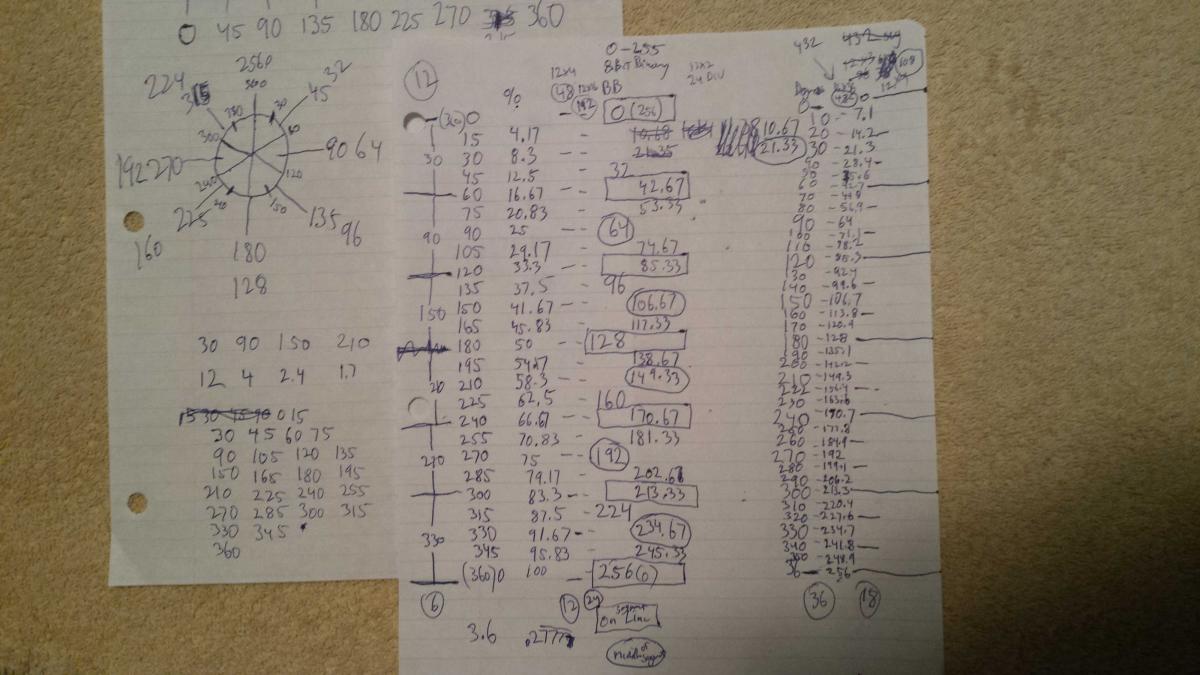 0 45 90 135 180 225 270 360
2560
224 32
315 360 30 45
330
300 60
192 270 90 64
240 120
225 150 135 96
160 180
128
30 90 150 210
12 4 2.4 1.7
15 30 45 90 0 15
30 45 60 75
90 105 120 135
150 165 180 195
210 225 240 255
270 285 300 315
330 345
360
12 % 12x4 48 12x16 192 0-255 8BiT Binary BB 12x2 24 DIV
(360)0 0(256)
15 4.17 10.68 10.67
30 30 8.3 -- 21.35 21.33
45 12.5 32
60 16.67 -- 42.67
75 20.83 53.33
90 90 25 -- 64
105 29.17 74.67
120 33.3 -- 85.33
135 37.5 96
150 150 41.67 -- 106.67
165 45.83 117.33
180 50 - 128
195 54.17 138.67
210 58.3 -- 149.33
225 62.5 160
240 66.67 -- 170.67
255 70.83 181.33
270 75 -- 192
285 79.17 202.67
300 83.3-- 213.33
315 87.5 - 224
330 330 91.67- 234.67
345 95.83 - 245.33
(360)0 100 256(0)
6 12 24 segment On Line
3.6 .2777
Middle of segment
432 432 seg 108
0 0
10 - 7.1
20 - 14.2-
30 - 21.3
- 28.4-
- 35.6
60 - 42.7
70
80 - 56.9-
90 - 64
100 - 71.1-
110 - 78.2
120 - 85.3
130 - 92.4
140 - 99.6-
150 -106.7
160 -113.8-
170 -120.9
180 -128
190 -135.1
200 -142.2-
210 -149.3
230
240 -170.7
-177.8
260 -184.9-
270 -192
280 -199.1-
290 -206.2
300 -213.3
310 -220.4
320 -227.6-
330 -234.7
340 -241.8-
-248.9
36 -256
36 18